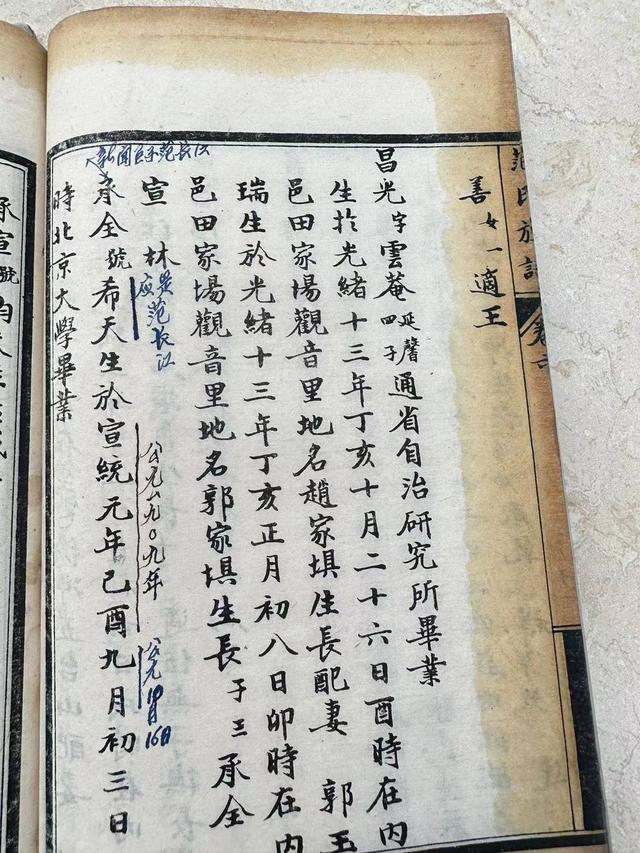 范氏族譜
善 女一適王
昌光字雲菴延馨四子通省自治研究所畢業
生於光緒十三年丁亥十月二十六日酉時在內
邑田家場觀音里地名趙家埧生長配妻 郭玉
瑞生於光緒十三年丁亥正月初八日卯時在內
邑田家場觀音里地名郭家埧生長 子三 承全
宣 林
应是范长江
公元一九〇九年
公元10月16日
新闻巨子范长江
承全號希天生於宣統元年己酉九月初三日
時北京大學畢業
承宣號